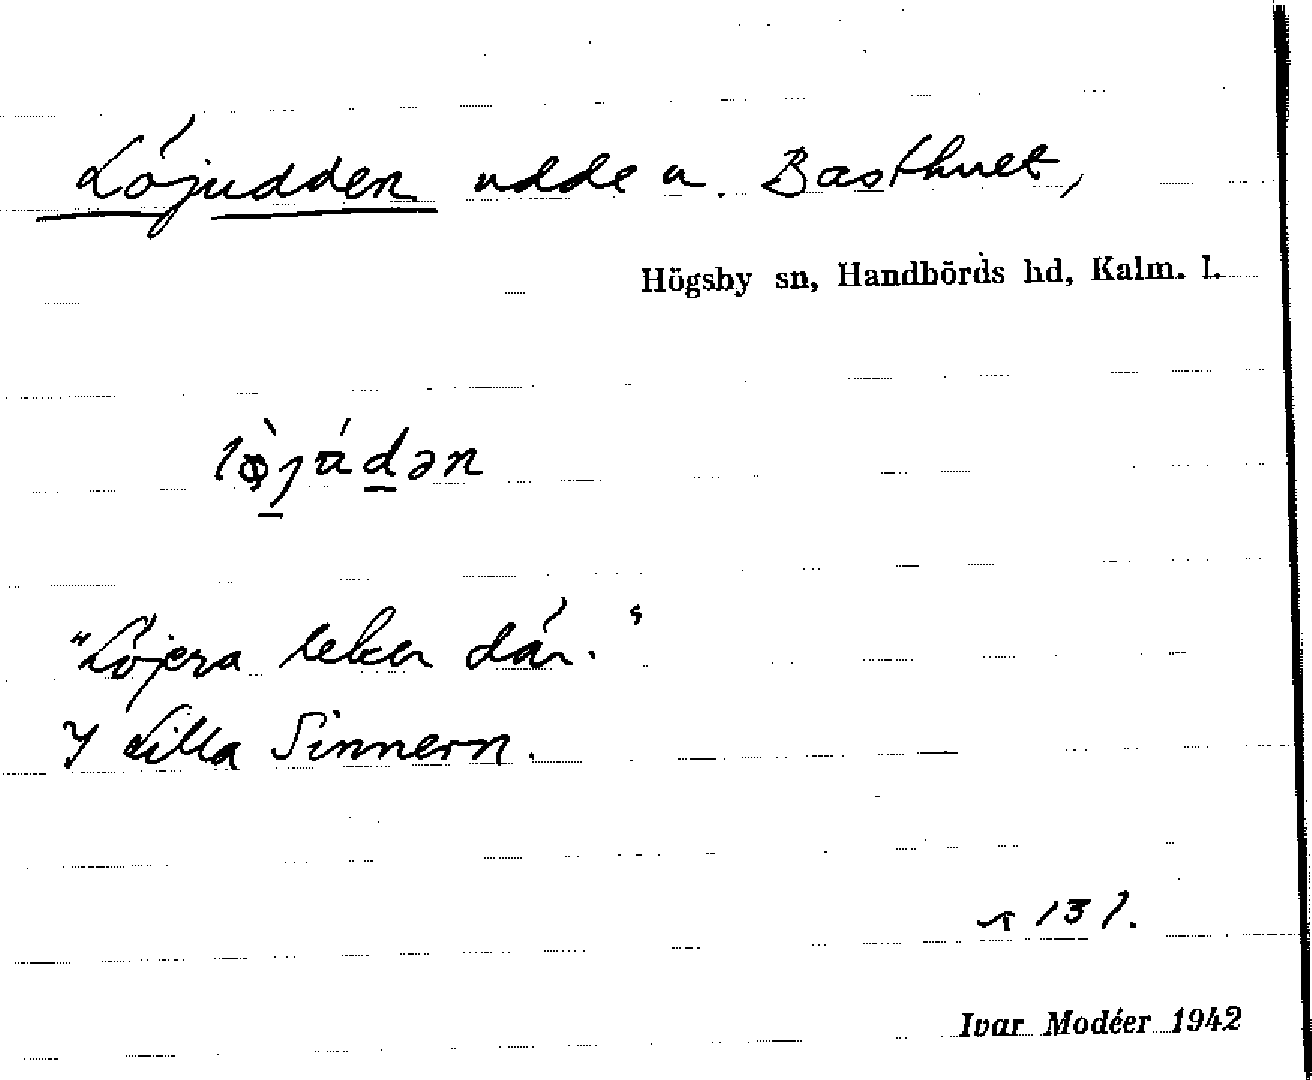 Löjudden udde u. Basthult,
Högsby sn, Handbörds hd, Kalm. l.
"Löjera leker där."
I Lilla Sinnern.
Ivar Modéer 1942